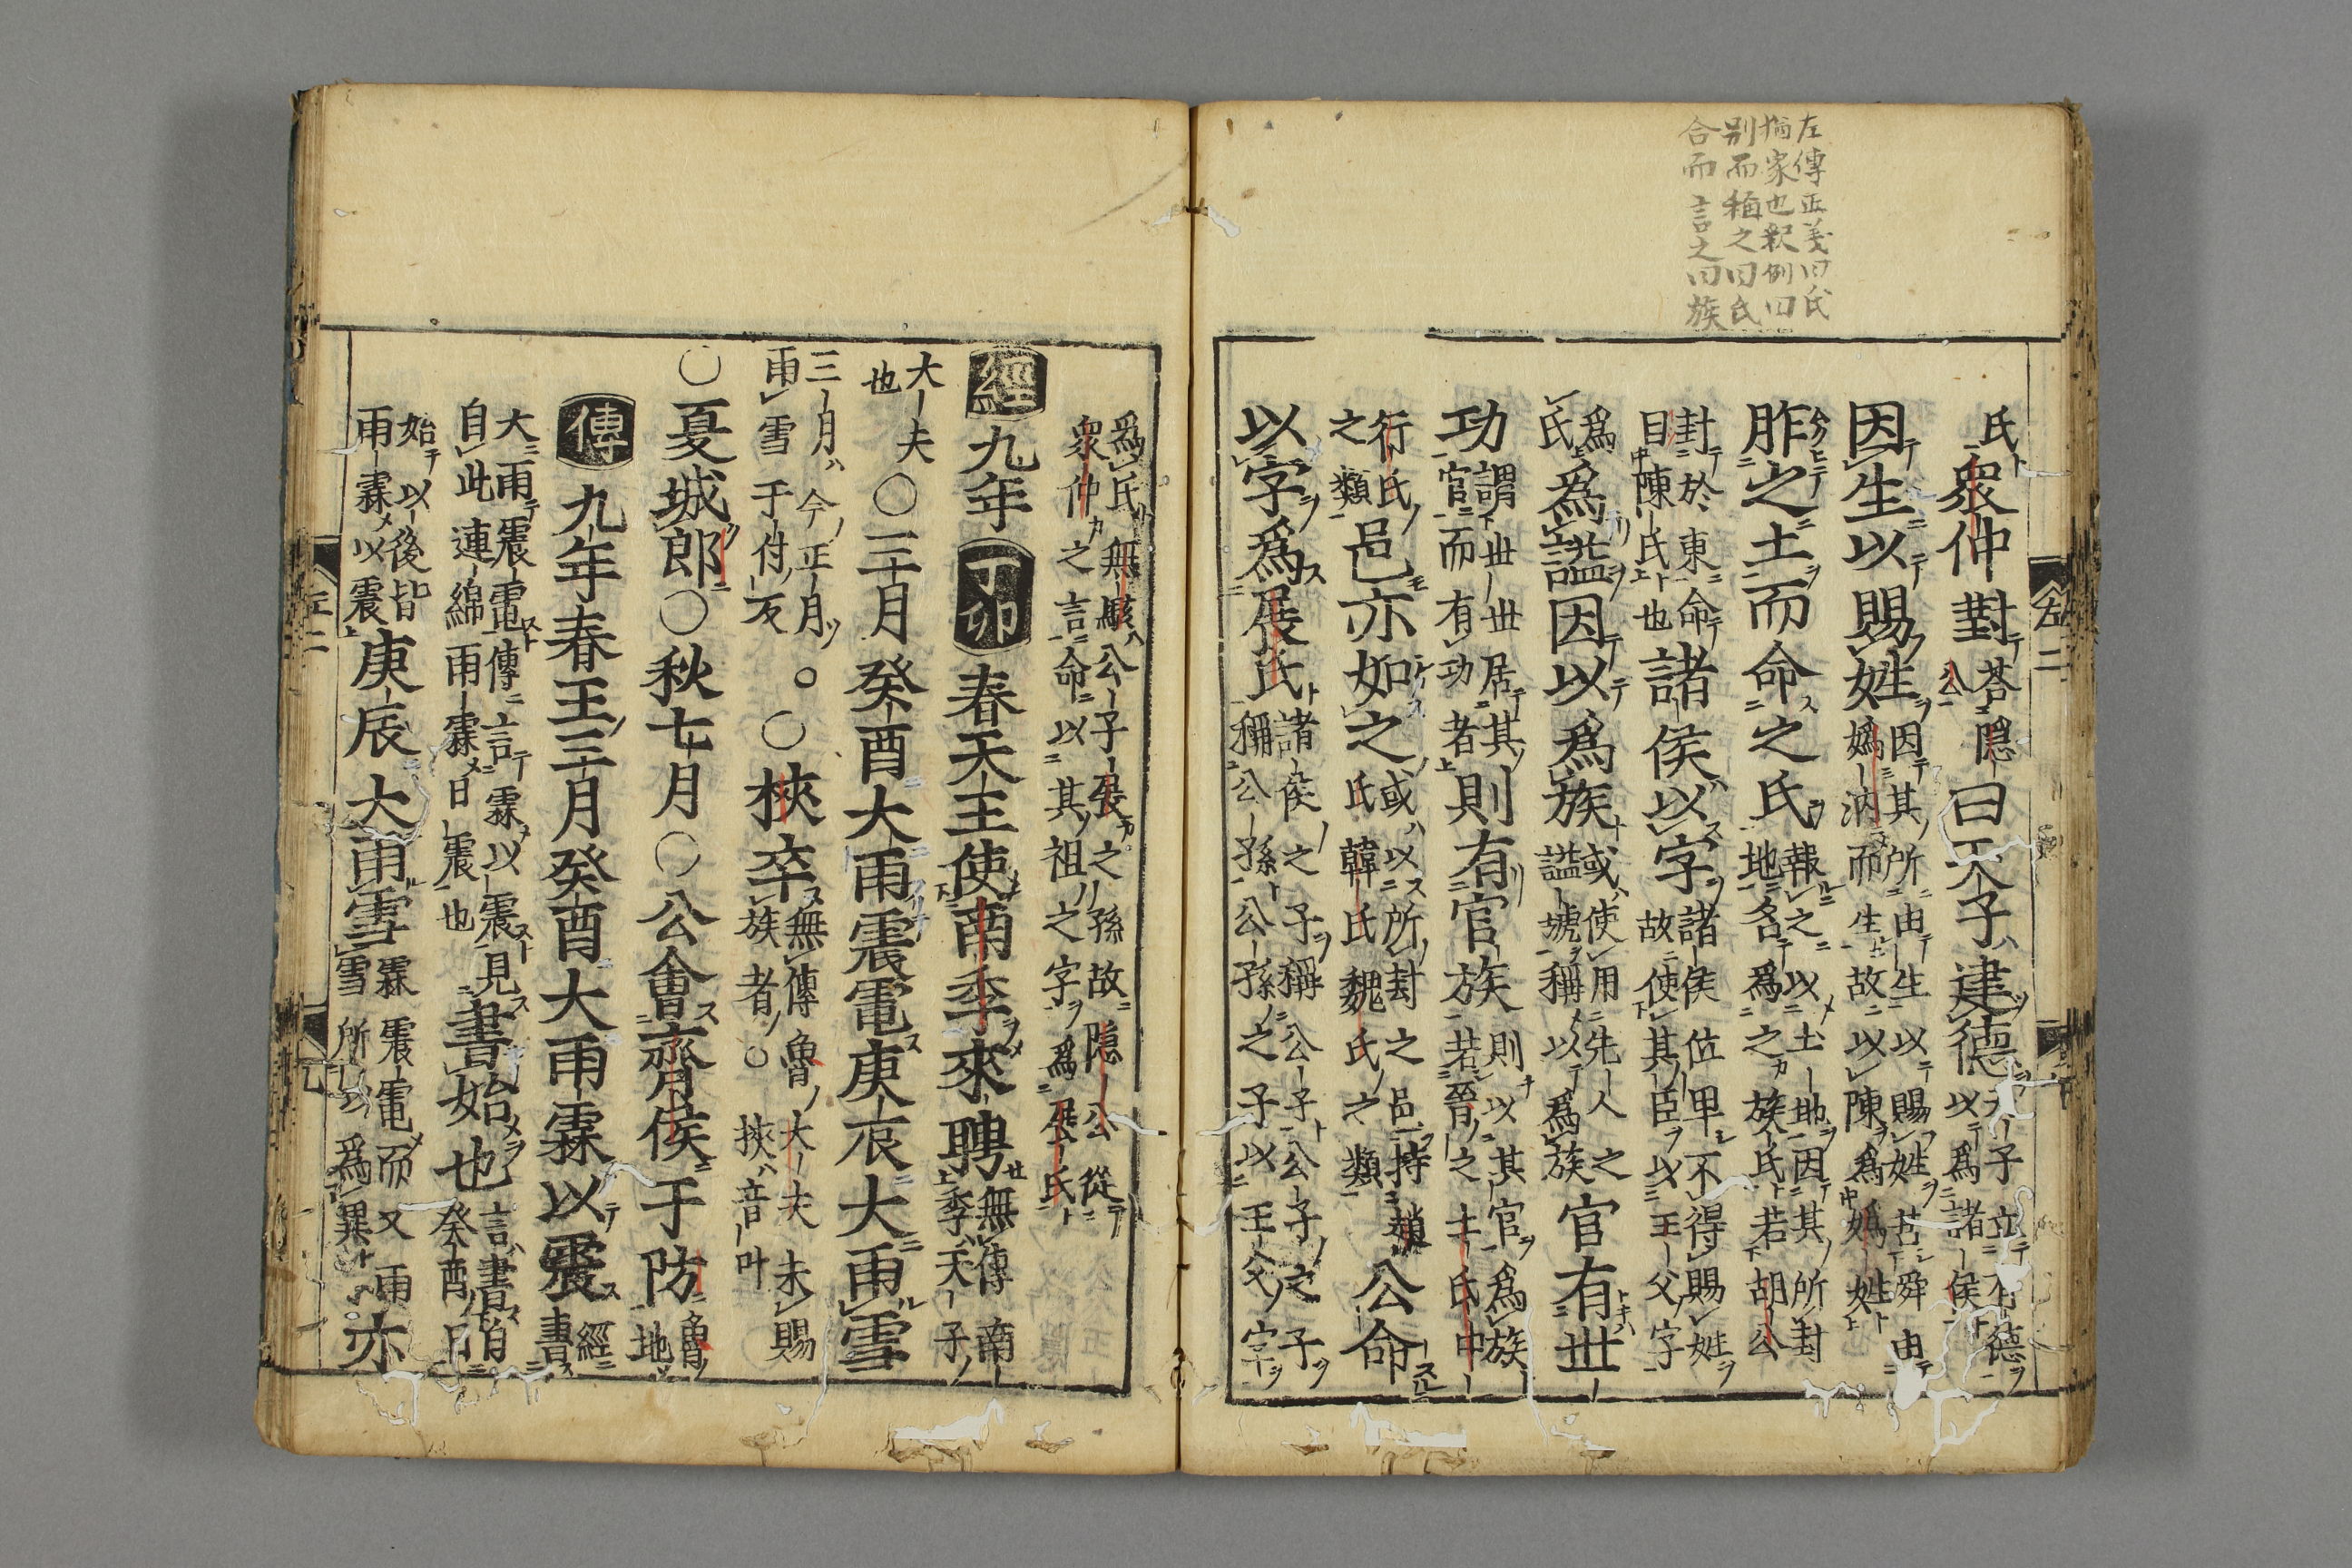 左傳正義曰氏
猶家也釈例曰
別而稱之曰氏
合而言之曰族
氏衆仲對荅隱公曰天子建德天子立有德以爲諸侯
因生以賜姓因其所由生以賜姓若舜由嬀汭而生故以陳爲嬀姓
胙之土而命之氏報之以土助因其所封地名爲之族氏若胡公
封於東命目陳氏也諸侯以字諸侯位卑不得賜姓故使其臣以王父字
爲氏爲謚因以爲族或使用先人之謚號稱以爲族官有世
功謂世世居其官而有功者則有官族則以其官爲族若晉之士氏中
行氏之類邑亦如之或以所封之邑持趙氏韓氏魏氏之類公命
以字爲展氏諸侯之子稱公子公子之子稱公孫公孫之子以王父字
左二
爲氏無駭公子展之孫故隱公從衆仲之言命以其祖之字爲展氏
經九年丁卯春天王使南季來聘無傳南季天子
大夫也○三月癸酉大雨震電庚辰大雨雪
三月今正月雨雪于付反○挾卒無傳魯大夫未賜族者○挾音叶
○夏城郎○秋七月○公會齊侯于防魯地
傳九年春王三月癸酉大雨霖以震經書
大雨震電傳言霖以震見自此連綿雨霖日震也書始也言書癸酉日
始以後皆雨霖以震庚辰大雨雪霖震電而又雨雪所以爲異亦